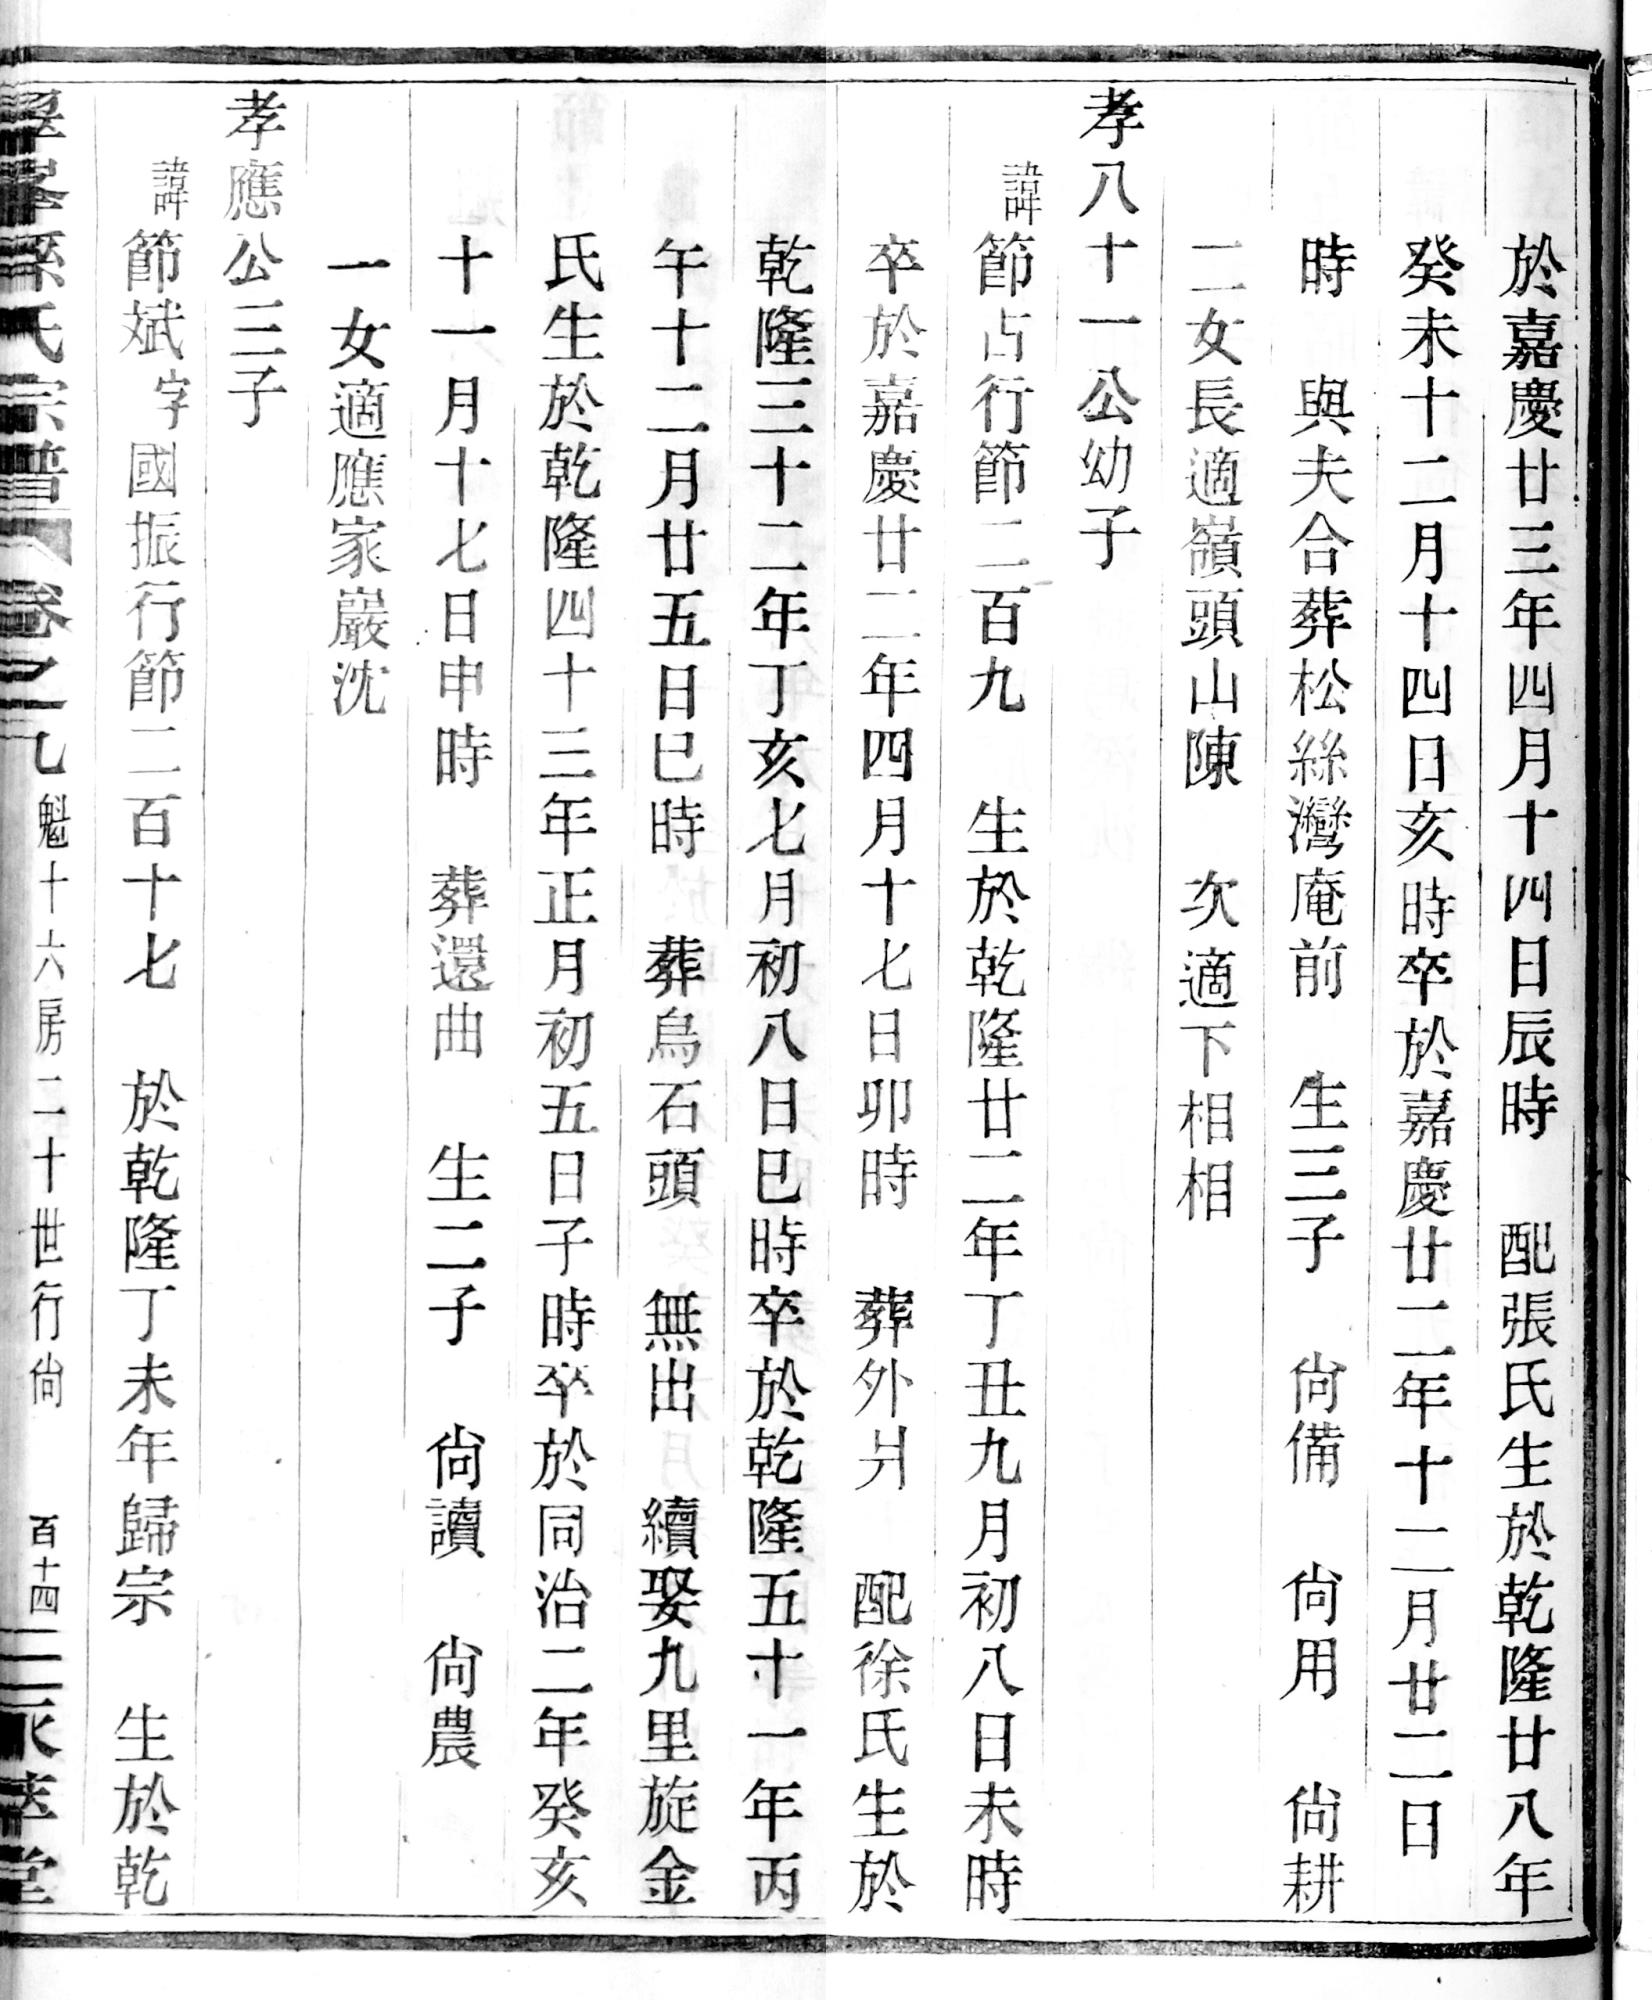 於嘉慶廿三年四月十四日辰時　配張氏生於乾隆廿八年
癸未十二月十四日亥時卒於嘉慶廿二年十二月廿二日
時　與夫合葬松絲灣庵前　生三子　尙備　尙用　尙耕
二女長適嶺頭山陳　次適下相相
孝八十一公幼子
諱節占行節二百九　生於乾隆廿二年丁丑九月初八日未時
卒於嘉慶廿二年四月十七日卯時　葬外爿　配徐氏生於
乾隆三十二年丁亥七月初八日巳時卒於乾隆五十一年丙
午十二月廿五日巳時　葬烏石頭　無出　續娶九里旋金
氏生於乾隆四十三年正月初五日子時卒於同治二年癸亥
十一月十七日申時　葬還曲　生二子　尙讀　尙農
一女適應家巖沈
孝應公三子
諱節斌字國振行節二百十七　於乾隆丁未年歸宗　生於乾
孫氏宗譜　卷之九　魁十六房二十世行尙　百十四　堂